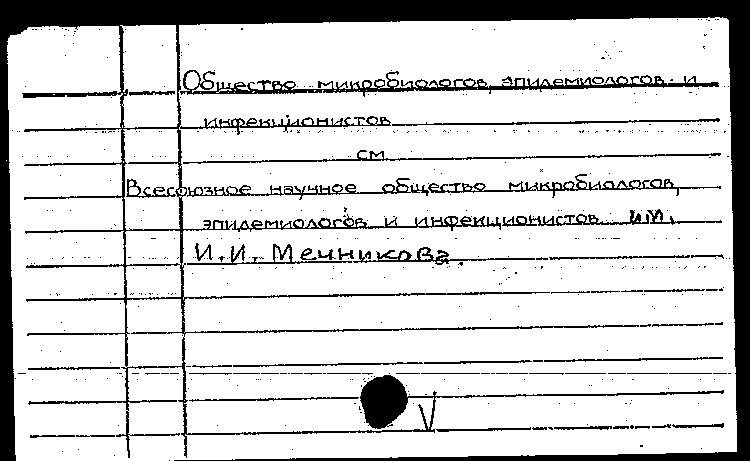 Общество микробиологов, эпидемиологов и
инфекционистов
см.
Всесоюзное научное общество микробиологов,
эпидемиологов и инфекционистов им.
И.И. Мечникова.
V